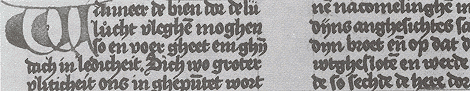 Wanneer de bien dor de lu
lucht vleghen moghen
so en voer gheet em ghyn
dach in ledicheit. Sich wo groter
vliticheit ons in ghepuret wort
ne nacomelinghe
dyns anghesichtes sa
dyn broet en op dat d
wtgheslote en werde
de so sechde de here dor